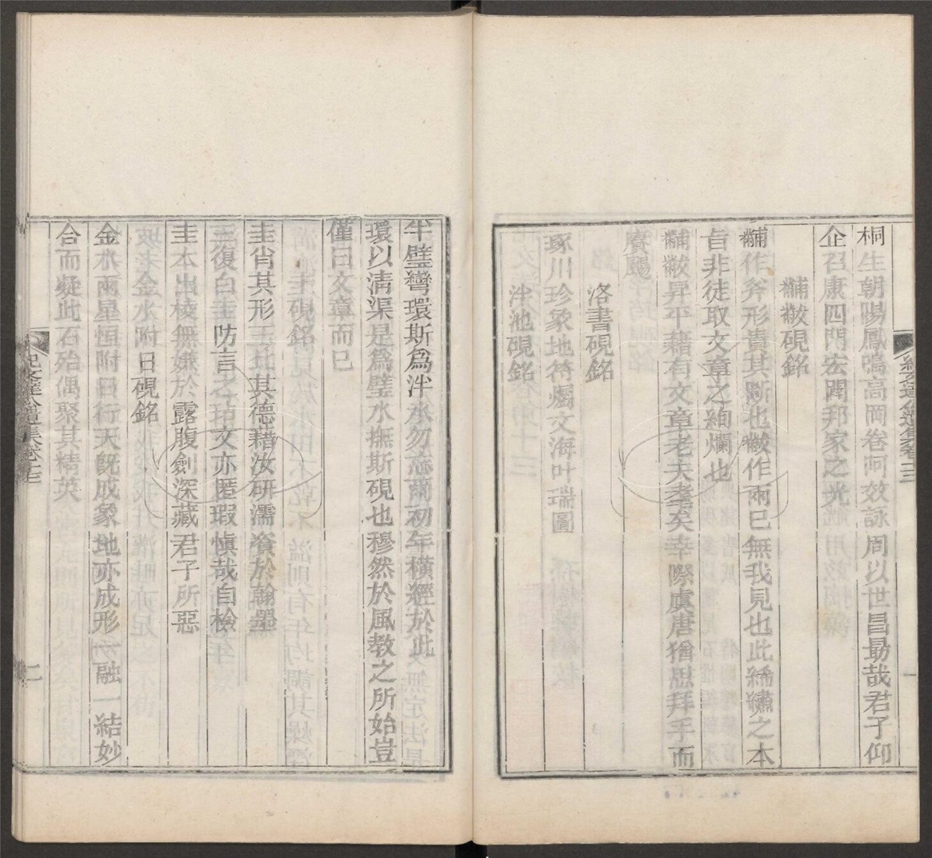 桐生朝陽鳳鳴高岡卷阿效詠周以世昌勗哉君子仰
企召康四門宏闢邦家之光
黼黻硯銘
黼作斧形貴其斷也黻作兩已無我見也此絺繡之本
旨非徒取文章之絢爛也
黼黻昇平藉有文章老夫耄矣幸際虞唐猶思拜手而
賡颺
洛書硯銘
琢川珍象地符爥文海叶瑞圖
泮池硯銘
半璧彎環斯爲泮水勿忘爾初年橫經於此
環以清渠是爲璧水撫斯硯也穆然於風教之所始豈
僅曰文章而已
圭硯銘
圭肖其形玉比其德藉汝研濡資於翰墨
三復白圭防言之玷文亦匿瑕慎哉自檢
圭本出棱無嫌於露腹劍深藏君子所惡
金水附日硯銘
金水兩星恒附日行天旣成象地亦成形一融一結妙
合而凝此石殆偶聚其精英
紀文達公遺集卷十三
一
紀文達公遺集卷十三
二